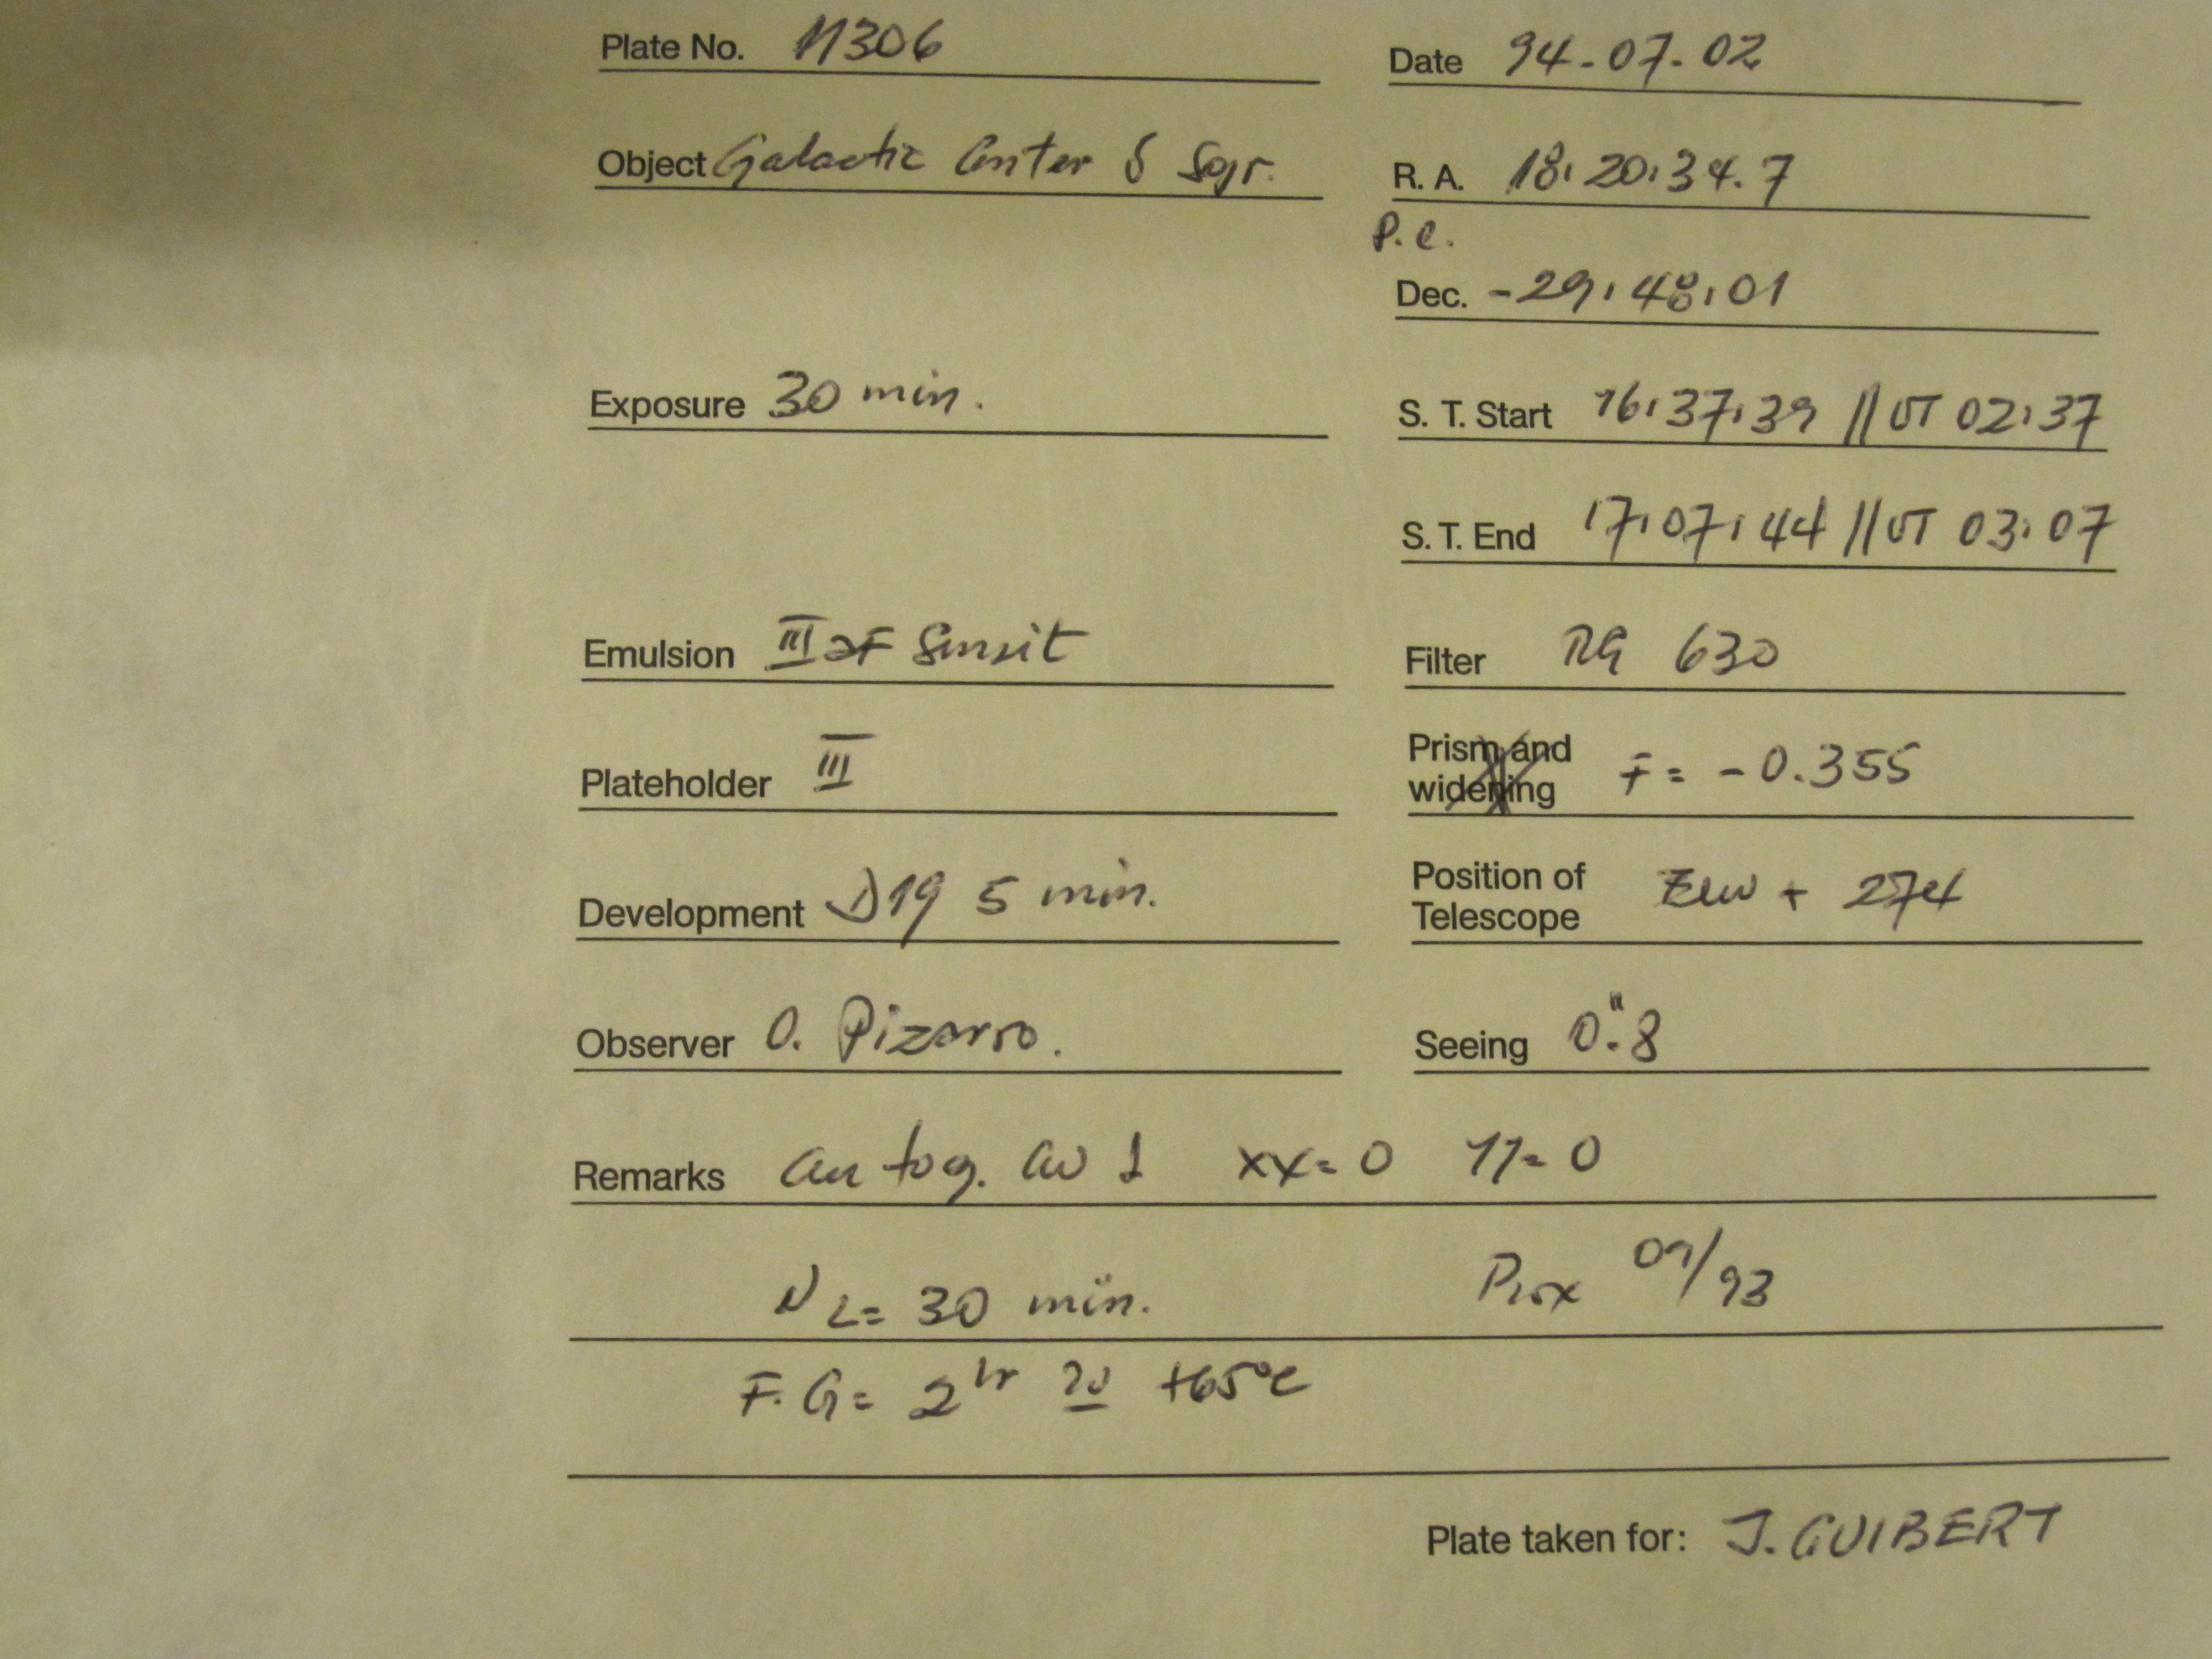 Plate No. 11306 Date 94-07-02
Object Galactic Center δ Sgr. R. A. 18:20:34.7
P.C.
Dec. -29:48:01
Exposure 30 min. S. T. Start 16:37:39 // UT 02:37
S. T. End 17:07:44 // UT 03:07
Emulsion III aF Sensit Filter RG 630
Plateholder III Prism and widening F= -0.355
Development D19 5 min. Position of Telescope + 274
Observer O. Pizarro. Seeing 0."8
Remarks autog. xx=0 yy=0
N2= 30 min. Prox 09/93
F.G= 2hr 20 +65°C
Plate taken for: J. GUIBERT